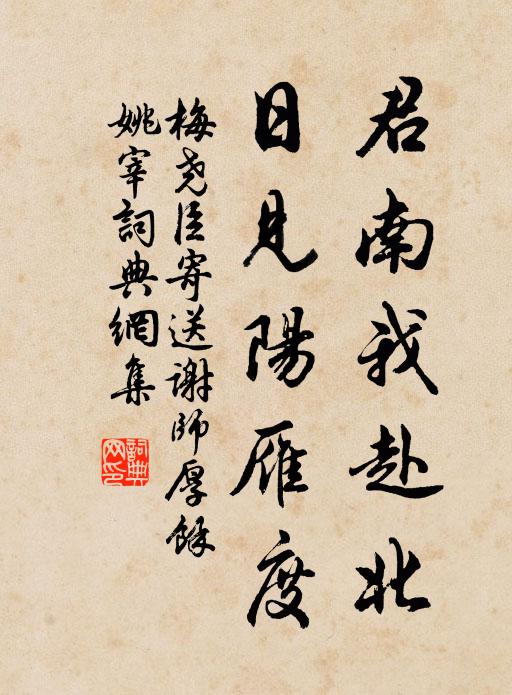 君南我赴北
日見陽雁度
梅尧臣寄送謝師厚餘
姚宰詞典網集
詞典
网印